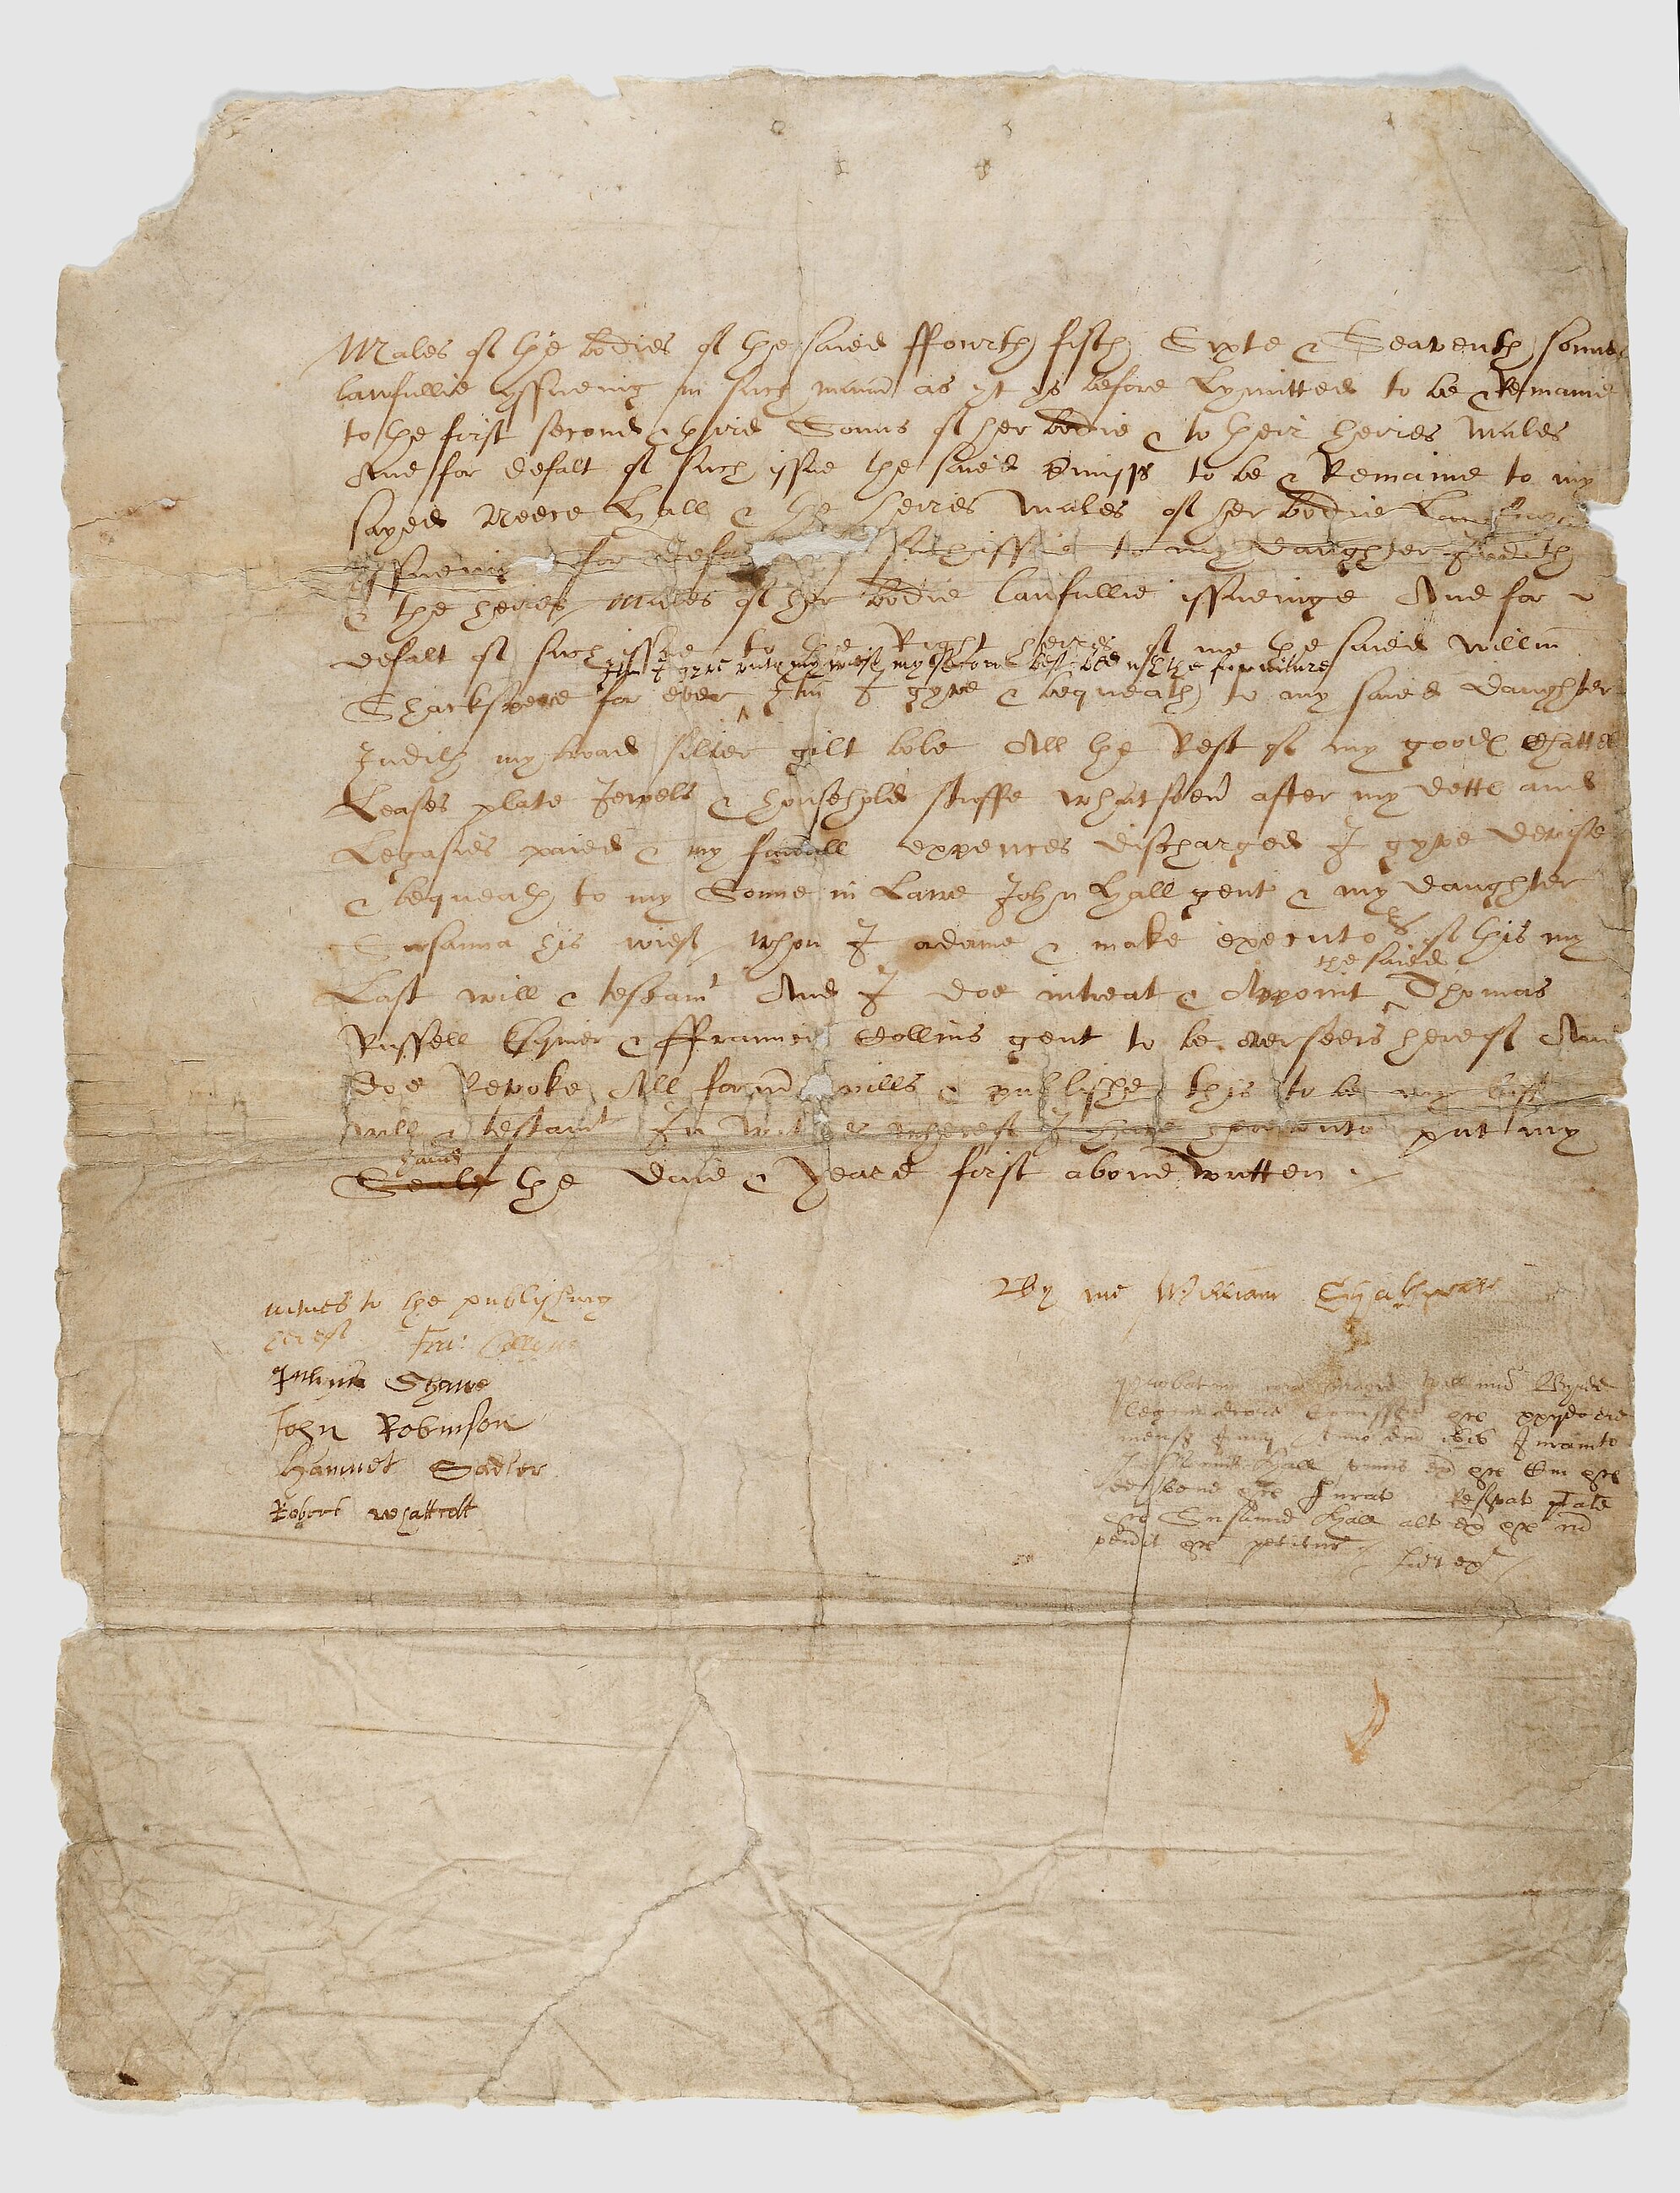 Males of the bodies of the saied ffourth fifth Sixte & Seaventh sonnes
lawfullie yssueing in such manner as yt ys before Lymitted to be & Remaine
to the first second & third Sonns of her bodie & to their heires Males
And for defalt of such issue the saied premisses to be & Remaine to my
sayed Neece Hall & the heires Males of her bodie Lawfully
yssueing for defa such issue to my daughter Judith
& the heires Males of her bodie lawfullie issueinge And for
defalt of such issue to the Right heires of me the saied Willm
Itm I gyve unto my wief my second best bed with the furniture
Shackspeare for ever Itm I gyve & bequeath to my saied daughter
Judith my broad silver gilt bole All the Rest of my goods Chattel
Leases plate Jewels & houshold stuffe whatsoever after my detts and
Legasies paied & my funerall expences discharged I gyve devise
& bequeath to my Sonne in Lawe John Hall gent & my daughter
Susanna his wief whom I ordaine & make executors of this my
the saied
Last will & testamt And I doe intreat & Appoint Thomas
Russell Esquier & ffrauncis Collins gent to be overseers hereof And
doe Revoke All former wills & publishe this to be my last
will & testamt In witnes whereof I have hereunto put my
hand
Seale the daie & Yeare first above written
By me William Shakspeare
witnes to the publishing
hereof Fra: Collyns
Julyus Shawe
John Robinson
Hamnet Sadler
Robert Whattcott